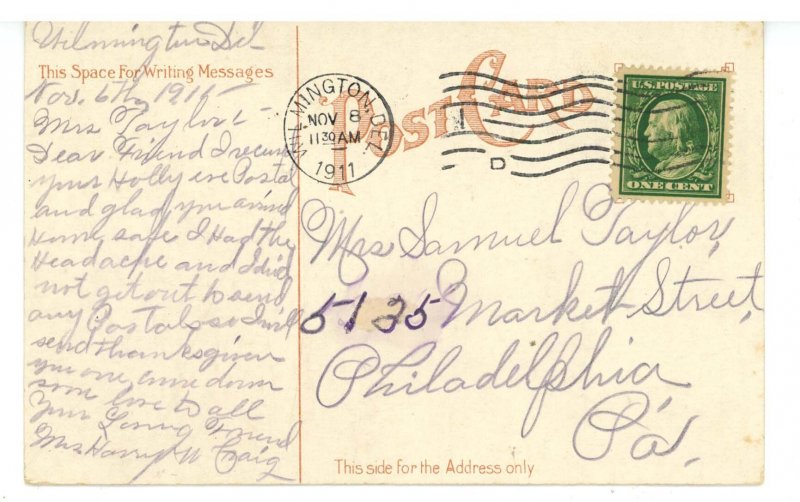 Wilmington Del
This Space For Writing Messages
Nov. 6th, 1911
Mrs Taylor
Dear Friend I receive
your Holly eve Postal
and glad you arrived
Home safe I Had the
Headache and I did
not get out to send
any Postals so I will
send thanksgiven
you one come down
some love to all
Your Loving Friend
Mrs Harry W Craig
POST CARD
WILMINGTON, DEL.
NOV 8
1130 AM
1911
D
U.S. POSTAGE
ONE CENT
Mrs Samuel Taylor,
5125 Market Street,
Philadelphia
Pa.
This side for the Address only